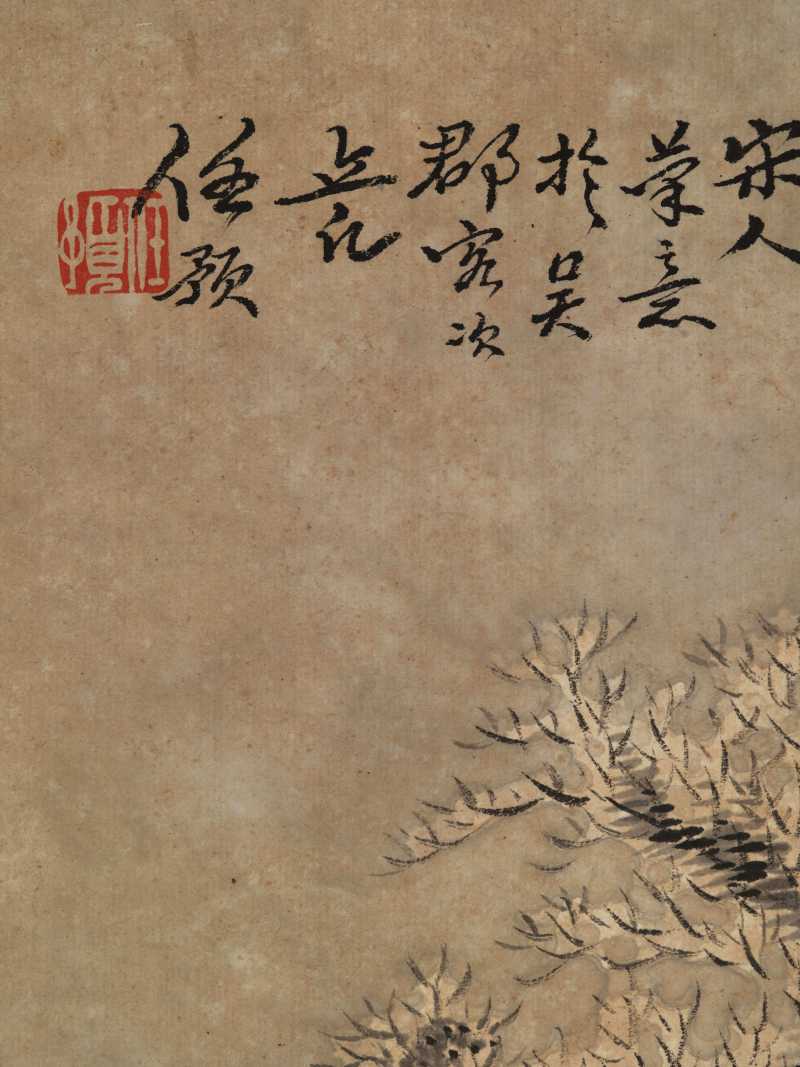 宋人
筆意
於吳
郡客次
立凡
任頤
任頤